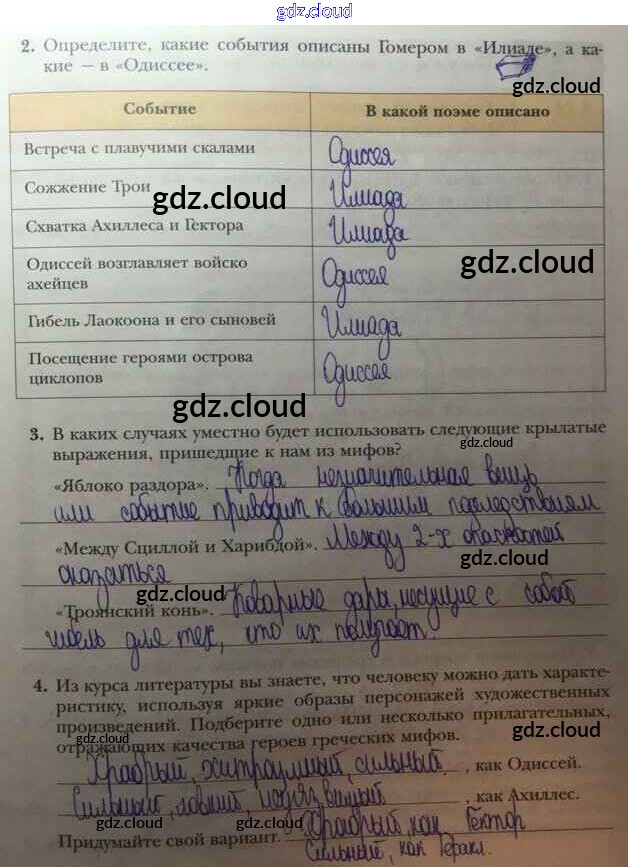 gdz.cloud
2. Определите, какие события описаны Гомером в «Илиаде», а ка-
кие — в «Одиссее».
gdz.cloud
Событие
В какой поэме описано
Встреча с плавучими скалами
Одиссея
Сожжение Трои
Илиада
gdz.cloud
Схватка Ахиллеса и Гектора
Илиада
Одиссей возглавляет войско
ахейцев
Одиссея
gdz.cloud
Гибель Лаокоона и его сыновей
Илиада
Посещение героями острова
циклопов
Одиссея
gdz.cloud
3. В каких случаях уместно будет использовать следующие крылатые
выражения, пришедшие к нам из мифов?
gdz.cloud
«Яблоко раздора». Когда незначительная вещь
или событие приводит к большим последствиям
gdz.cloud
«Между Сциллой и Харибдой». Между 2-х опасностей
gdz.cloud
оказаться
gdz.cloud
«Троянский конь». Коварные дары, несущие с собой
гибель для тех, кто их получает.
4. Из курса литературы вы знаете, что человеку можно дать характе-
ристику, используя яркие образы персонажей художественных
произведений. Подберите одно или несколько прилагательных,
отражающих качества героев греческих мифов.
gdz.cloud
gdz.cloud
Храбрый, хитроумный, сильный, как Одиссей.
Сильный, ловкий, неуязвимый, как Ахиллес.
gdz.cloud
gdz.cloud
Придумайте свой вариант. Храбрый, как Гектор
Сильный, как Геракл.
gdz.cloud